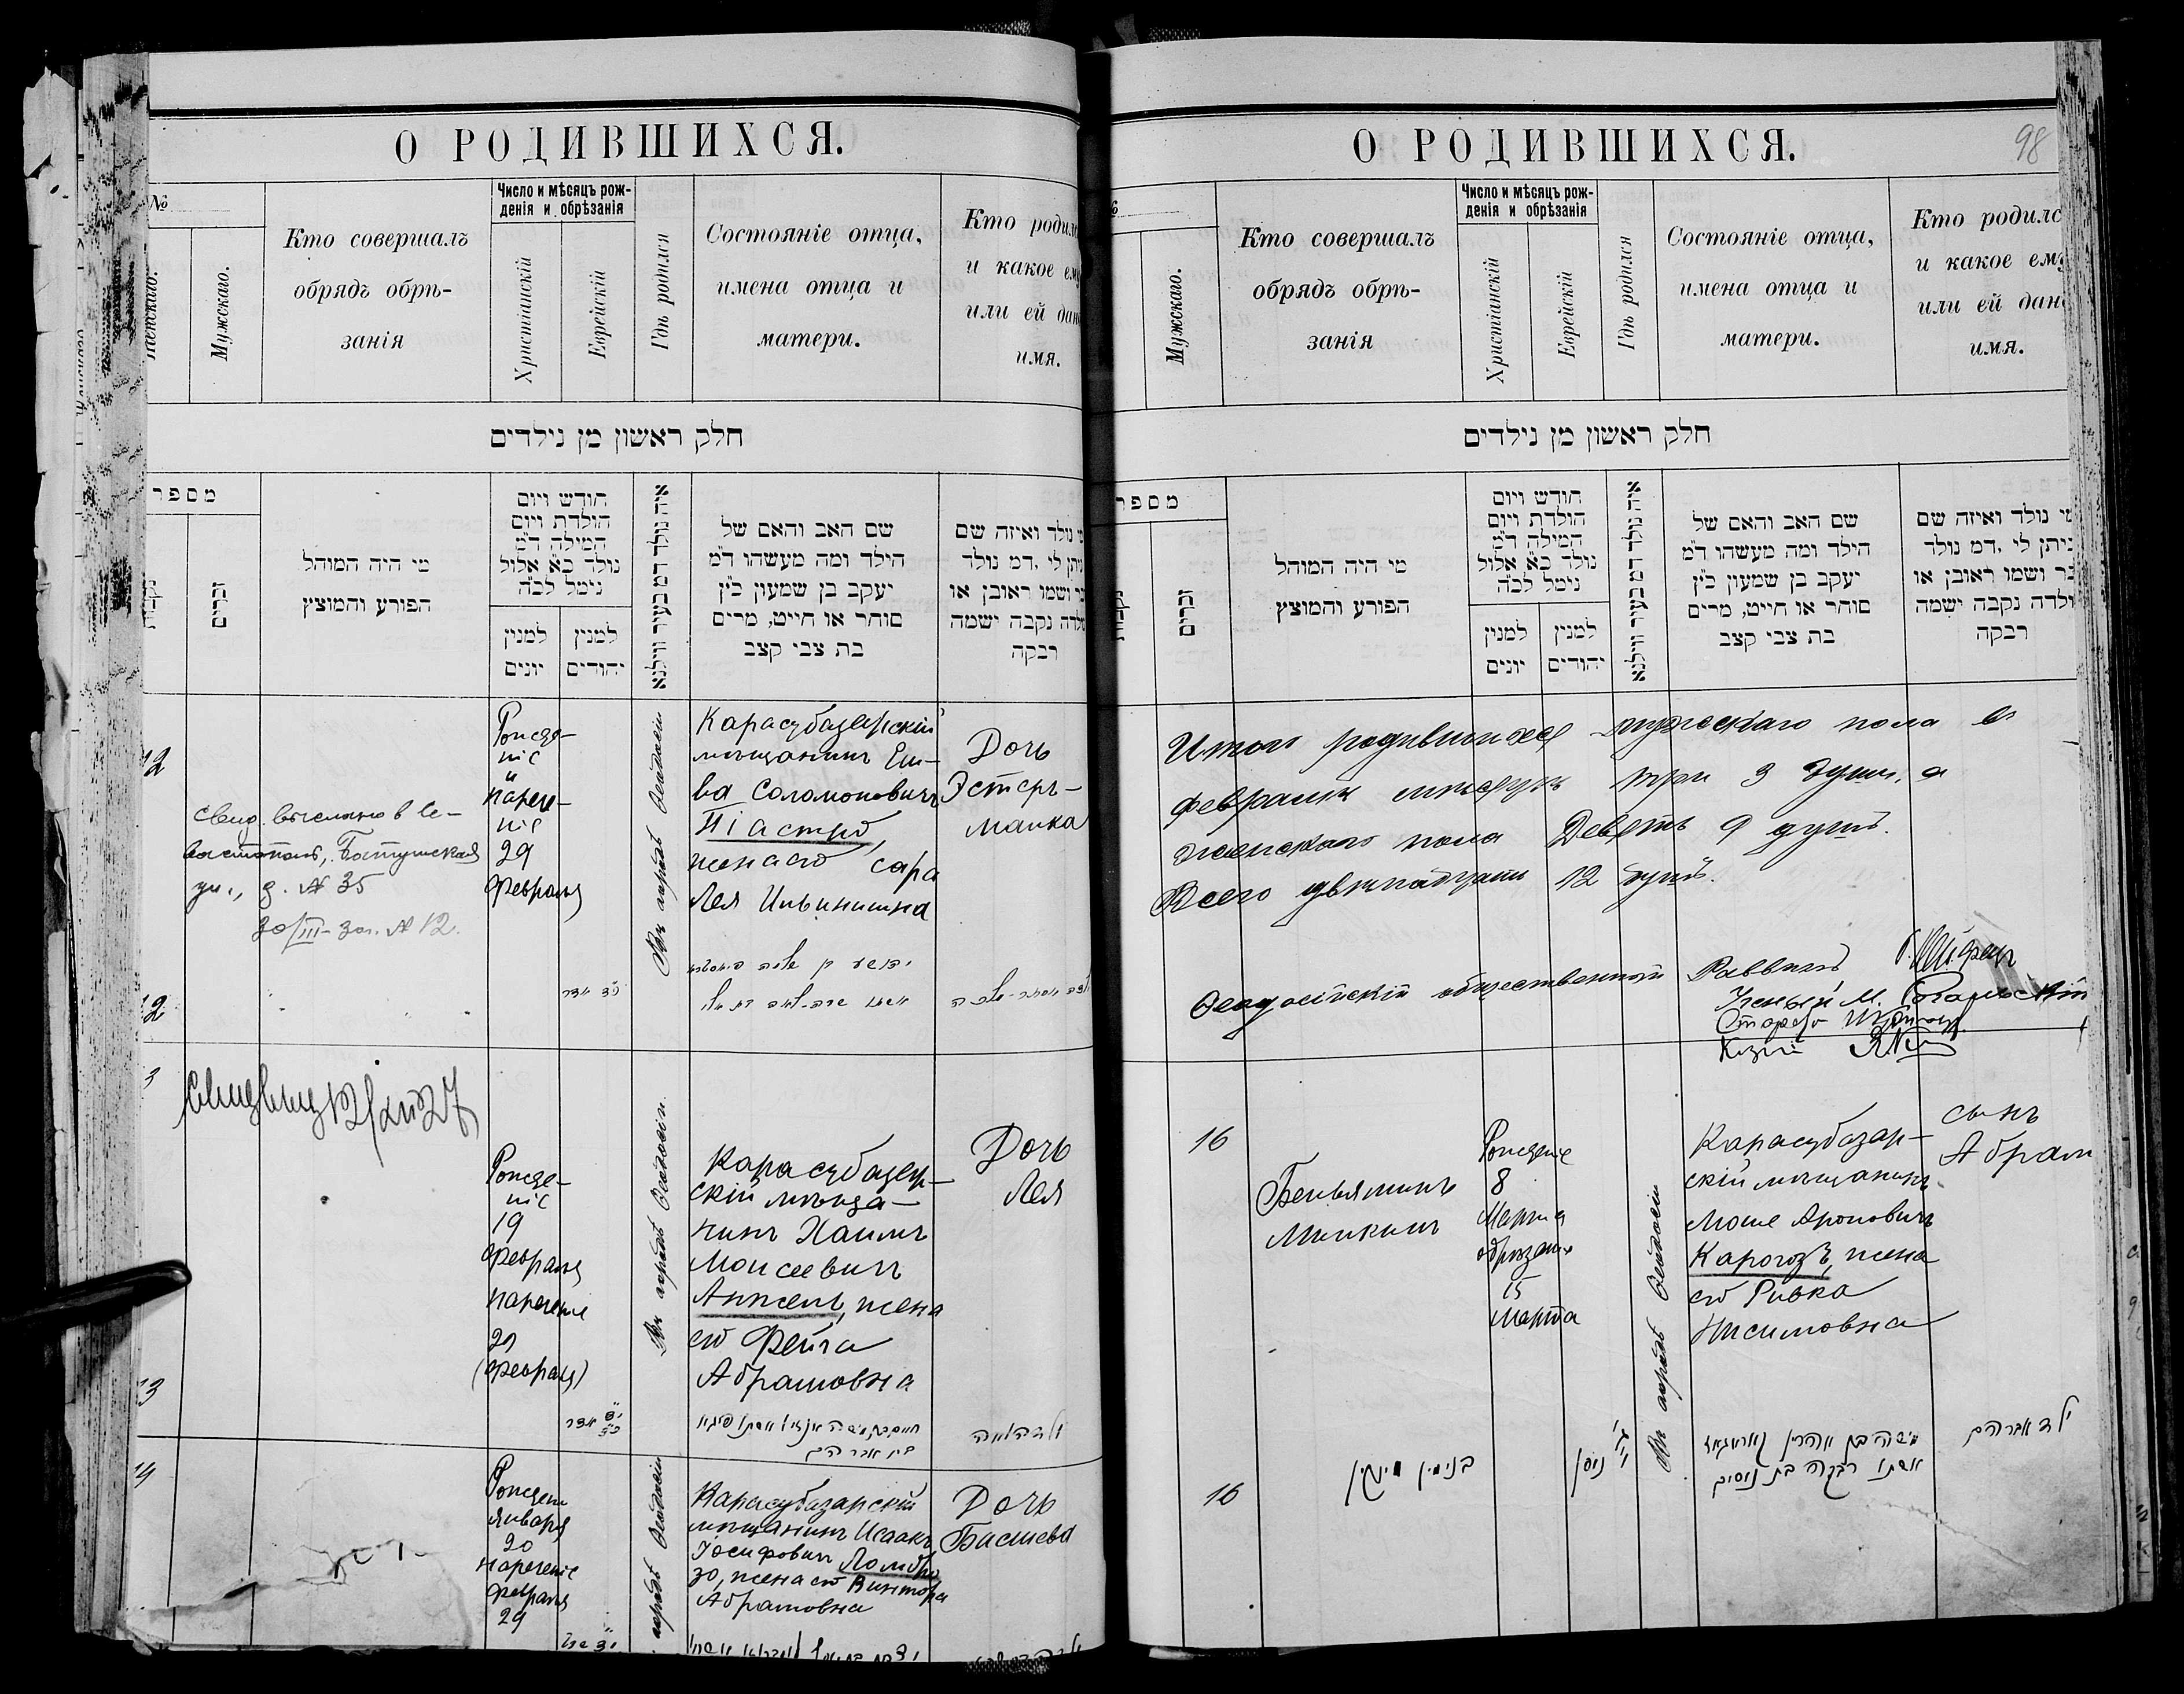 О РОДИВШИХСЯ.
№
Женскаго.
Мужскаго.
Кто совершалъ
обрядъ обрѣ-
занія
Число и мѣсяцъ рож-
денія и обрѣзанія
Христіанскій
Еврейскій
Гдѣ родился
Состояніе отца,
имена отца и
матери.
Кто родилс
и какое ем
или ей дан
имя.
חלק ראשון מן נילדים
מספר
זכרים
מי היה המוהל
הפורע והמוצץ
חודש ויום
הולדת ויום
המילה ד"מ
נולד כ"א אלול
נימל לכ"ה
למנין
יונים
למנין
יהודים
איה נולד דמ בעיר ווילנא
שם האב והאם של
הילד ומה מעשהו ד"מ
יעקב בן שמעון כ"ץ
סוחר או חייט, מרים
בת צבי קצב
מי נולד ואיזה שם
ניתן לי, דמ נולד
ושמו ראובן או
ולדה נקבה ישמה
רבקה
12
Свид. выслано в Се-
вастополь, Батумская
ул., д. № 35
30/III- № 12.
Рожде-
ніе
и
нарече-
ніе
29
февраля
Въ городѣ Ѳеодосіи
Карасубазарскій
мѣщанинъ Еш-
ва Соломоновичъ
Піастро,
жена его Сара
Лея Ильинишна
Дочь
Эстеръ-
Малка
12
3
Рожде-
ніе
19
февраля
нареченіе
29
февраля
Въ городѣ Ѳеодосіи.
Карасубазар-
скій мѣща-
нинъ Хаимъ
Моисеевичъ
Анжелъ, жена
его Фейга
Абрамовна
Дочь
Лея
13
14
Рожденіе
января
20
нареченіе
февраля
29
городѣ Ѳеодосіи
Карасубазарскій
мѣщанинъ Исаакъ
Іосифовичъ Ломбро
зо, жена его Виктора
Абрамовна
Дочь
Басшева
О РОДИВШИХСЯ.
98
Мужскаго.
Кто совершалъ
обрядъ обрѣ-
занія
Число и мѣсяцъ рож-
денія и обрѣзанія
Христіанскій
Еврейскій
Гдѣ родился
Состояніе отца,
имена отца и
матери.
Кто родилс
и какое ему
или ей дан
имя.
חלק ראשון מן נילדים
מספר
זכרים
מי היה המוהל
הפורע והמוצץ
חודש ויום
הולדת ויום
המילה ד"מ
נולד כ"א אלול
נימל לכ"ה
למנין
יונים
למנין
יהודים
איה נולד דמ בעיר ווילנא
שם האב והאם של
הילד ומה מעשהו ד"מ
יעקב בן שמעון כ"ץ
סוחר או חייט, מרים
בת צבי קצב
מי נולד ואיזה שם
ניתן לי, דמ נולד
ושמו ראובן או
ולדה נקבה ישמה
רבקה
Итого родившихся мужескаго пола въ
февралѣ мѣсяцѣ три 3 души, а
женскаго пола Девять 9 душъ.
Всего двѣнадцать 12 душъ.
Ѳеодосійскій общественный Раввинъ
Ученый М.
Староста
16
Беньяминъ
Минкинъ
Рожденіе
8
Марта
обрѣзаніе
15
Марта
Въ городѣ Ѳеодосіи
Карасубазар-
скій мѣщанинъ
Моше Ароновичъ
Карогозъ, жена
его Ривка
Нисимовна
сынъ
Абрам
16
בנימין מינקין
ניסן
משה בת אהרין קאראגאז
אשתו רבקה בת ניסים
ילד אברהם